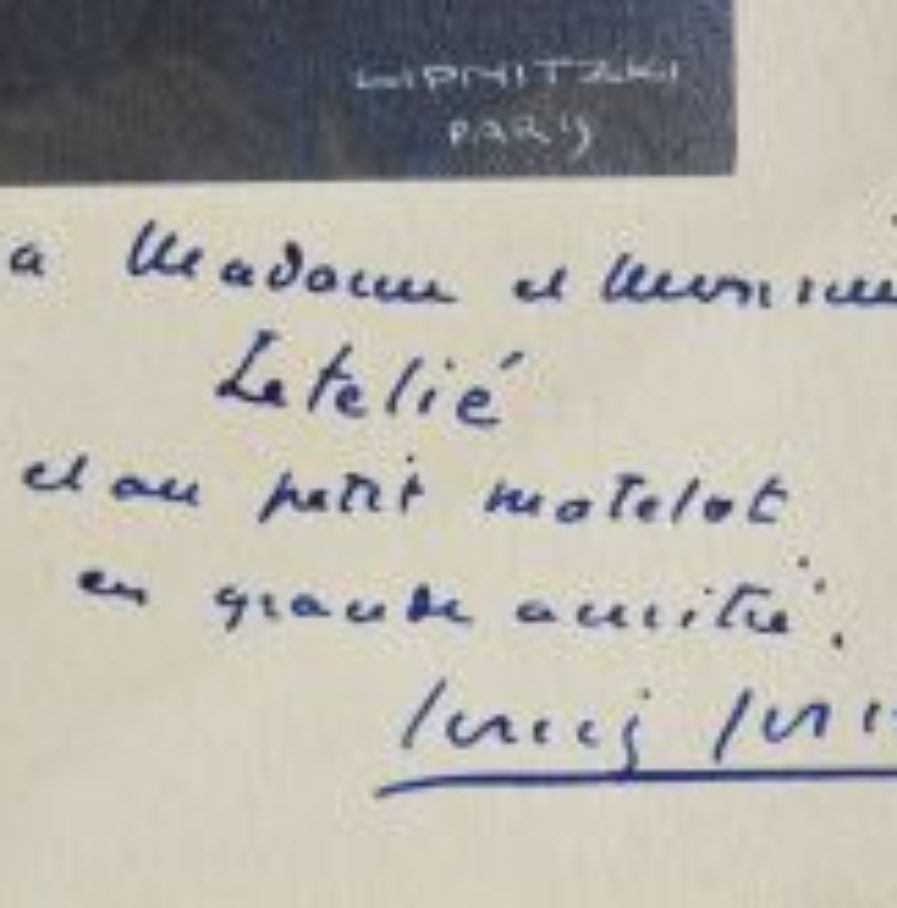 LIPNITZKI
PARIS
a Madame et Monsieu
Letelié
et au petit matelot
en grande amitié.